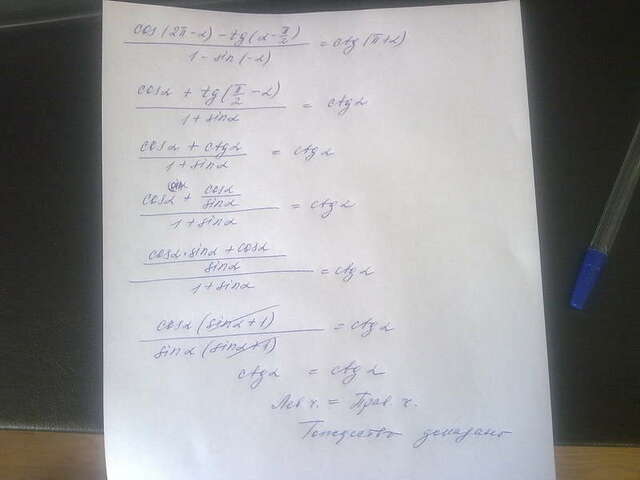 cos(2π-α) - tg(α-π/2) / 1 - sin(-α) = ctg(π+α)
cosα + tg(π/2 - α) / 1 + sinα = ctgα
cosα + ctgα / 1 + sinα = ctgα
cosα + cosα/sinα / 1 + sinα = ctgα
cosα·sinα + cosα / sinα / 1 + sinα = ctgα
cosα (sinα + 1) / sinα (sinα + 1) = ctgα
ctgα = ctgα
Лев ч. = Прав ч.
Тождество доказано